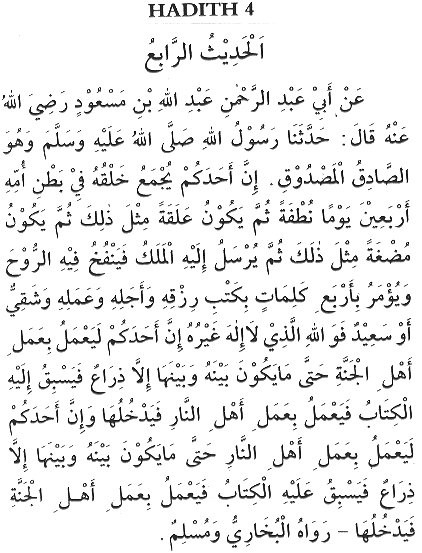 HADITH 4
اَلْحَدِيْثُ الرَّابِعُ
عَنْ أَبِيْ عَبْدِ الرَّحْمٰنِ عَبْدِ اللهِ بْنِ مَسْعُوْدٍ رَضِيَ اللهُ
عَنْهُ قَالَ: حَدَّثَنَا رَسُوْلُ اللهِ صَلَّى اللهُ عَلَيْهِ وَسَلَّم وَهُوَ
الصَّادِقُ الْمَصْدُوْقِ. إِنَّ أَحَدَكُمْ يُجْمَعُ خَلْقُهُ فِيْ بَطْنِ أُمِّهِ
أَرْبَعِيْنَ يَوْمًا نُطْفَةً ثُمَّ يَكُوْنُ عَلَقَةً مِثْلَ ذٰلِكَ ثُمَّ يَكُوْنُ
مُضْغَةً مِثْلَ ذٰلِكَ ثُمَّ يُرْسَلُ إِلَيْهِ الْمَلَكُ فَيَنْفُخُ فِيْهِ الرُّوْحَ
وَيُؤْمَرُ بِأَرْبَعِ كَلِمَاتٍ بِكَتْبِ رِزْقِهِ وَأَجَلِهِ وَعَمَلِهِ وَشَقِيٌّ
أَوْ سَعِيْدٌ فَوَ اللهِ الَّذِيْ لَاإِلٰهَ غَيْرُهُ إِنَّ أَحَدَكُمْ لَيَعْمَلُ بِعَمَلِ
أَهْلِ الْجَنَّةِ حَتَّى مَايَكُوْنَ بَيْنَهُ وَبَيْنَهَا إِلَّا ذِرَاعٌ فَيَسْبِقُ إِلَيْهِ
الْكِتَابُ فَيَعْمَلُ بِعَمَلِ أَهْلِ النَّارِ فَيَدْخُلُهَا وَإِنَّ أَحَدَكُمْ
لَيَعْمَلُ بِعَمَلِ أَهْلِ النَّارِ حَتَّى مَايَكُوْنَ بَيْنَهُ وَبَيْنَهَا إِلَّا
ذِرَاعٌ فَيَسْبِقُ عَلَيْهِ الْكِتَابُ فَيَعْمَلُ بِعَمَلِ أَهْلِ الْجَنَّةِ
فَيَدْخُلُهَا – رَوَاهُ الْبُخَارِيُّ وَمُسْلِمٌ.